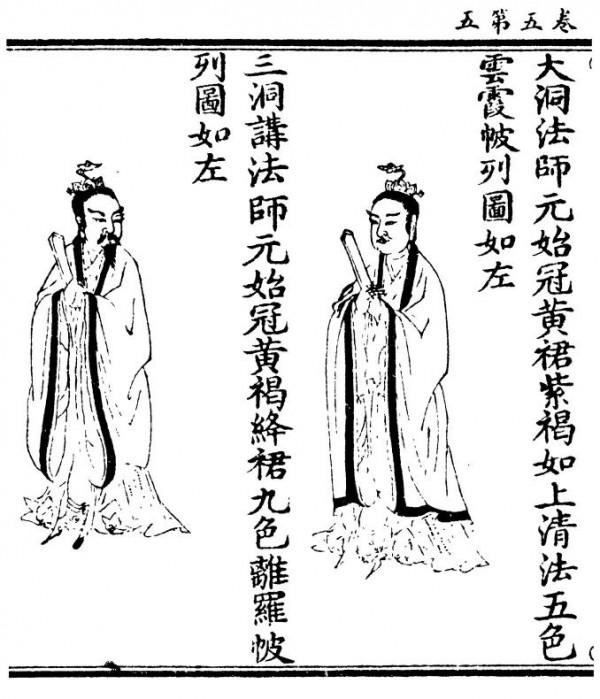 卷五第五
大洞法師元始冠黃裙紫褐如上清法五色
雲霞帔列圖如左
三洞講法師元始冠黃褐絳裙九色離羅帔
列圖如左